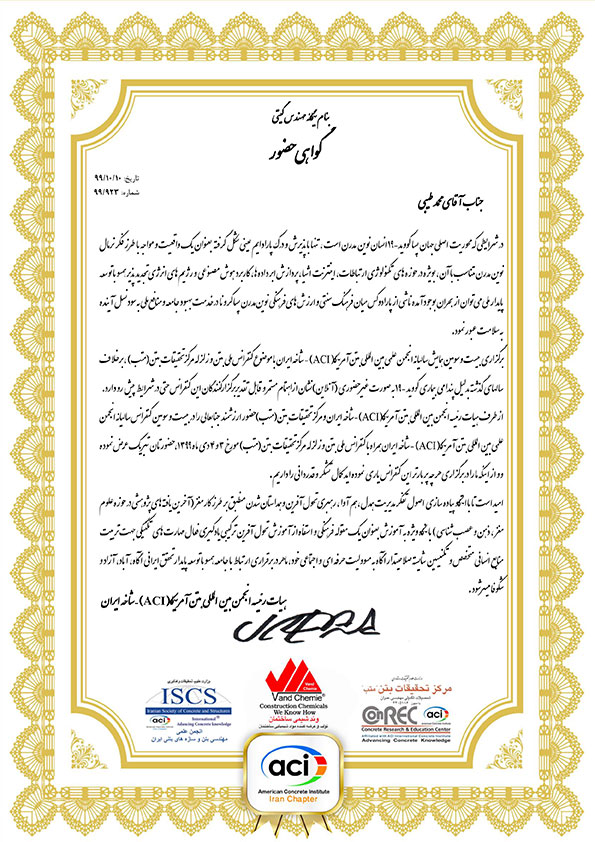 بنام یگانه مهندس گیتی
گواهی حضور
تاریخ: ۹۹/۱۰/۱۰
شماره: ۹۹/۹۲۳
جناب آقای محمد طیبی
در شرایطی که محوریت اصلی جهان پساکووید-۱۹ انسان نوین مدرن است، تنها با پذیرش و درک پارادایم عینی شکل گرفته بعنوان یک واقعیت و مواجه با طرز تفکر نرمال
نوین مدرن متناسب با آن، بویژه در حوزه های تکنولوژی ارتباطات، اینترنت اشیا، پردازش ابر داده ها، کاربرد هوش مصنوعی و رژیم های انرژی تجدید پذیر همسو با توسعه
پایدار ملی می توان از بحران بوجود آمده ناشی از پارادوکس میان فرهنگ سنتی و ارزش های فرهنگی نوین مدرن پساکرونا در خدمت بهبود جامعه و منافع ملی به سود نسل آینده
به سلامت عبور نمود.
برگزاری بیست و سومین همایش سالیانه انجمن علمی بین المللی بتن آمریکا (ACI)-شاخه ایران با موضوع کنفرانس ملی بتن و زلزله مرکز تحقیقات بتن (متب)، برخلاف
سالهای گذشته بدلیل بیماری کووید-۱۹ به صورت غیر حضوری (آنلاین) نشان از اهتمام مستمر و قابل تقدیر برگزارکنندگان این کنفرانس حتی در شرایط پیش رو دارد.
از طرف هیات رئیسه انجمن بین المللی بتن آمریکا (ACI)-شاخه ایران و مرکز تحقیقات بتن (متب) حضور ارزشمند جنابعالی را در بیست و سومین کنفرانس سالیانه انجمن
علمی بین المللی بتن آمریکا (ACI)-شاخه ایران همراه با کنفرانس ملی بتن و زلزله مرکز تحقیقات بتن (متب) مورخ ۳ و ۴ دی ماه ۱۳۹۹، حضورتان تبریک عرض نموده
و از اینکه ما را در برگزاری هرچه پربارتر این کنفرانس یاری نموده اید کمال تشکر و قدردانی را داریم.
امید است تا با اتکا به پیاده سازی اصول تفکر مدیریت همدل، هم آوا، رهبری تحول آفرین و همداستان شدن منطبق بر طرز کار مغز (آخرین یافته های پژوهشی در حوزه علوم
مغز، ذهن و عصب شناسی) با نگاه ویژه به آموزش بعنوان یک مقوله فرهنگی و استفاده از آموزش تحول آفرین ترکیبی یادگیری فعال مهارت های تکنیکی جهت تربیت
منابع انسانی متخصص و تکنسین شایسته صلاحیتدار آگاه به مسوولیت حرفه ای و اجتماعی خود، ماهر در برقراری ارتباط با جامعه همسو با توسعه پایدار تحقق ایرانی آگاه، آباد، آزاد و
شکوفا میسر شود.
هیات رئیسه انجمن بین المللی بتن آمریکا (ACI)-شاخه ایران
وزارت علوم، تحقیقات و فناوری
ISCS
Iranian Society of Concrete and Structures
aci
International
Advancing Concrete Knowledge
انجمن علمی
مهندسی بتن و سازه های بتنی ایران
Vand Chemie
Vand Chemie®
Construction Chemicals
We Know How
وند شیمی ساختمان
تولید و عرضه کننده مواد شیمیایی ساختمان
مرکز تحقیقات بتن متب
ConREC
aci
Concrete Research & Education Center
Affiliated with ACI International Concrete Institute
Advancing Concrete Knowledge
aci
American Concrete Institute
Iran Chapter